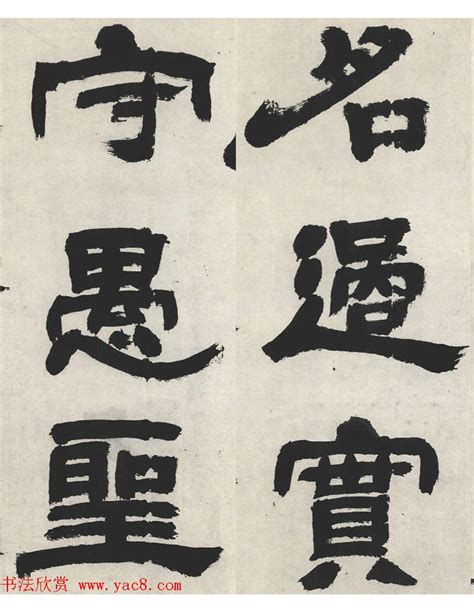 名過實
守愚聖
书法欣赏 www.yac8.com